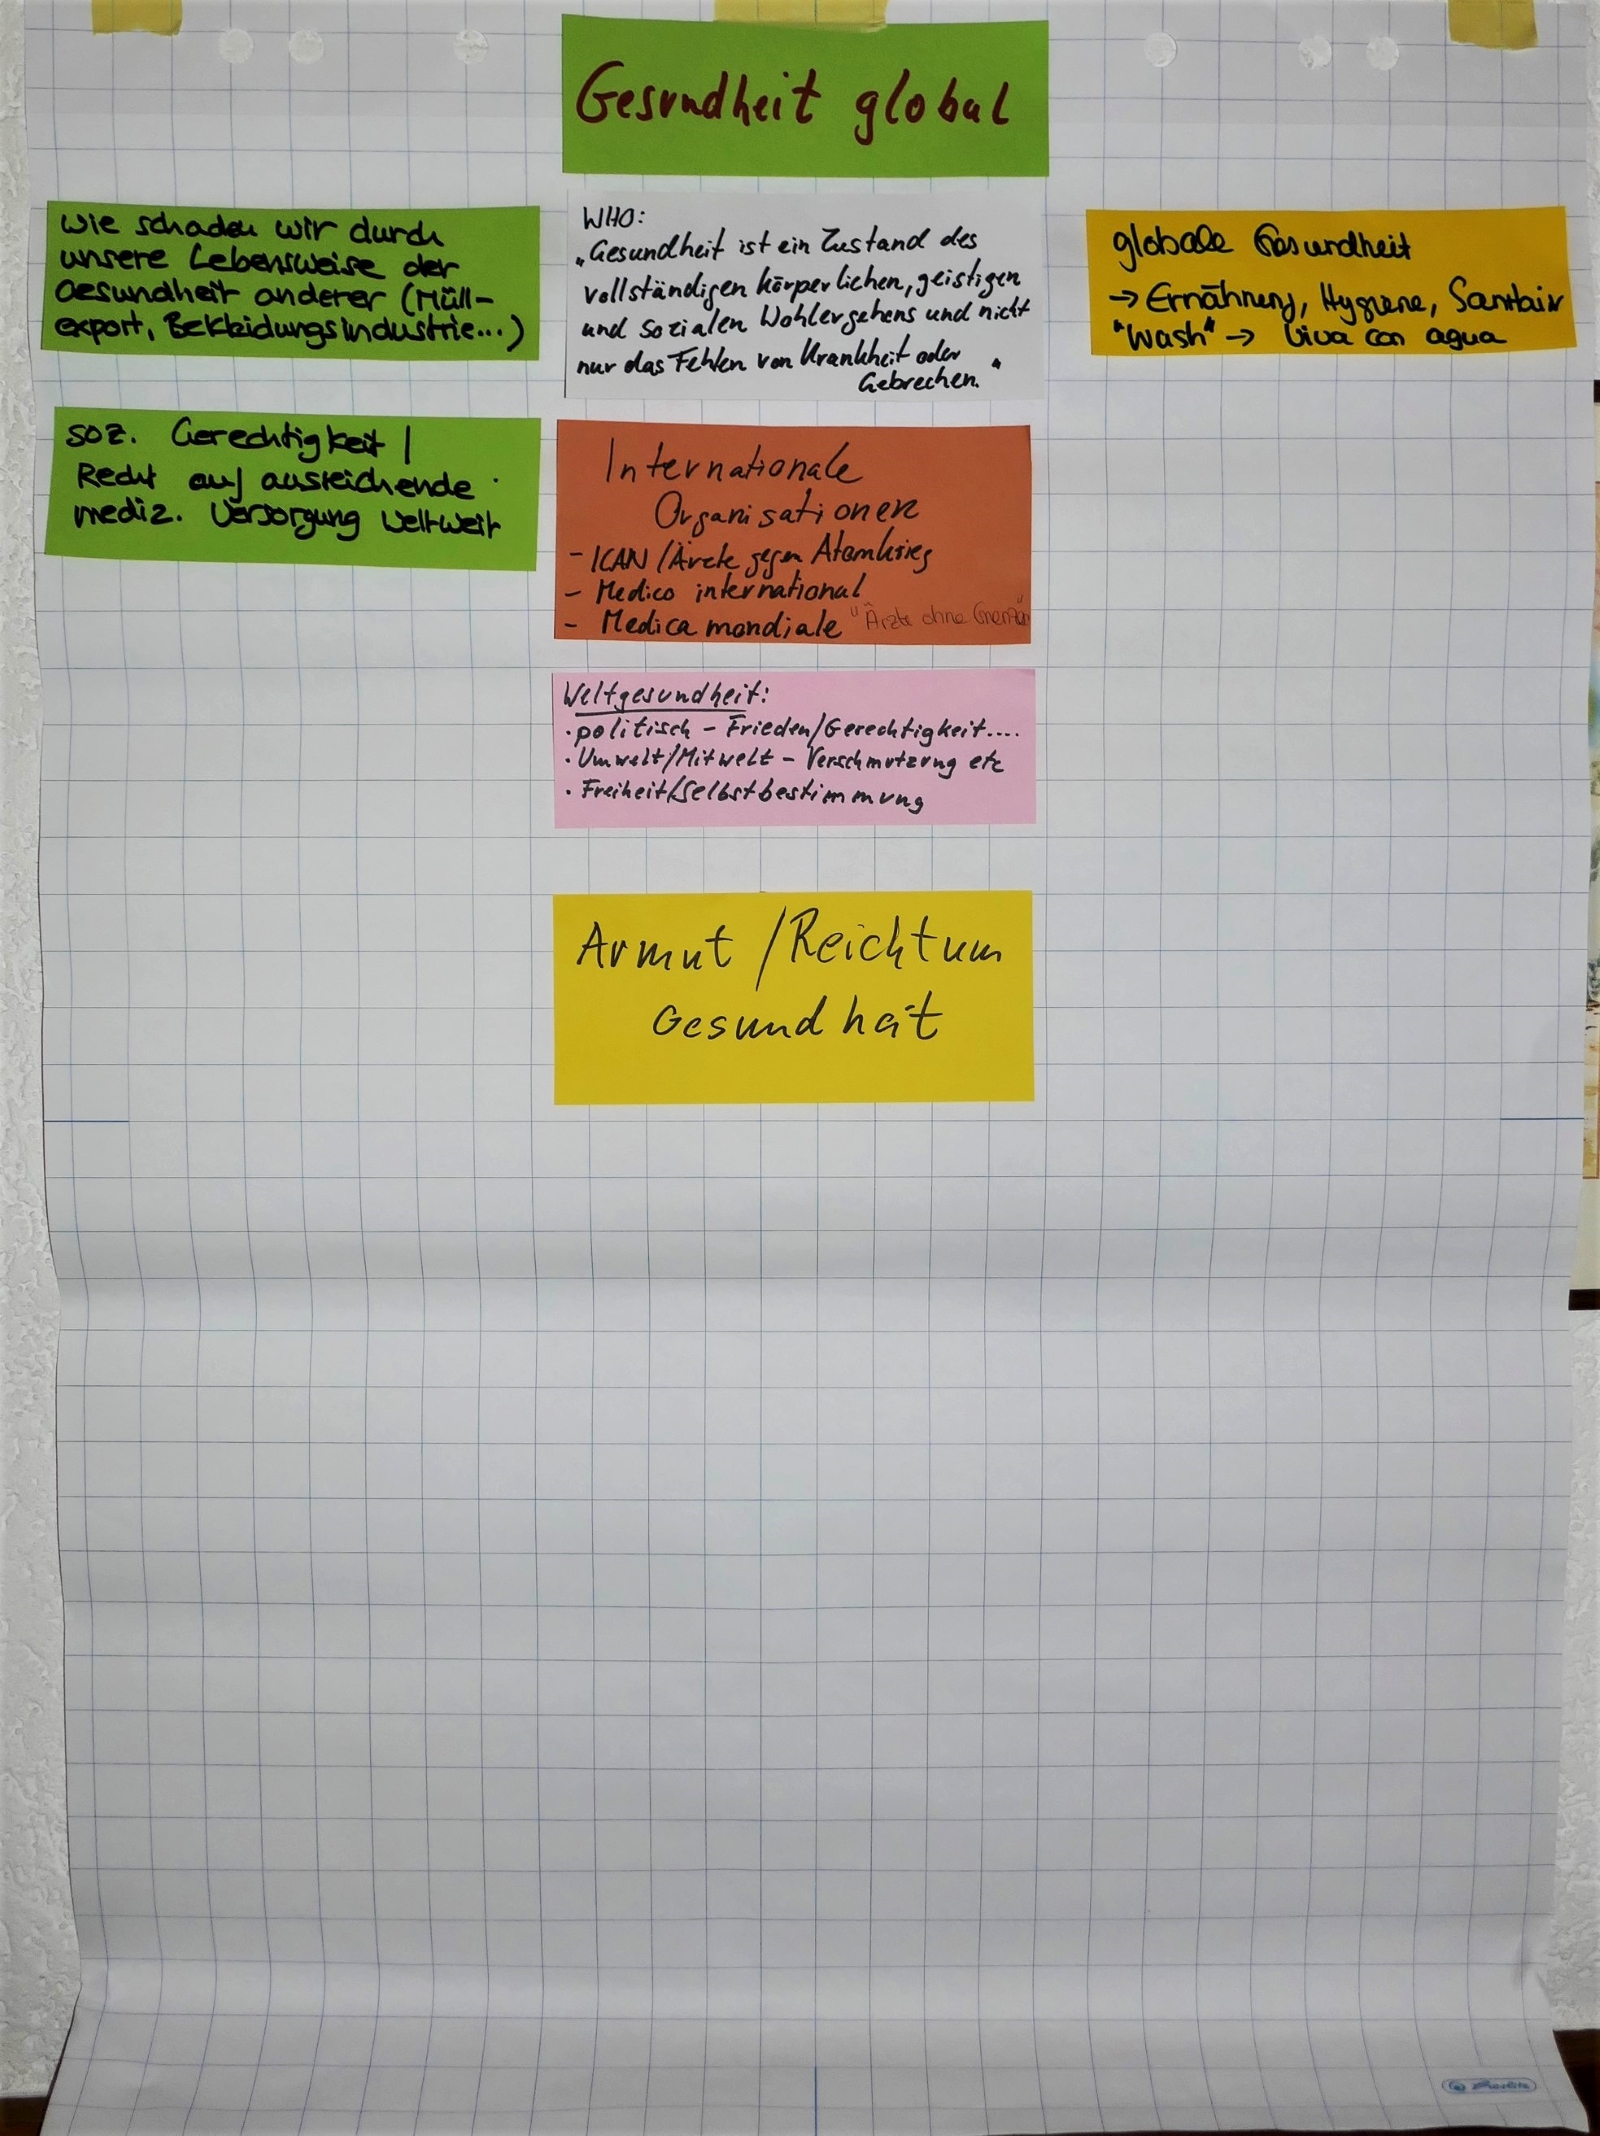 Gesundheit global
Wie schaden wir durch
unsere Lebensweise der
Gesundheit anderer (Müll-
export, Bekleidungsindustrie...)
soz. Gerechtigkeit /
Recht auf ausreichende
mediz. Versorgung weltweit
WHO:
„Gesundheit ist ein Zustand des
vollständigen körperlichen, geistigen
und sozialen Wohlergehens und nicht
nur das Fehlen von Krankheit oder
Gebrechen."
Internationale
Organisationen
- ICAN/Ärzte gegen Atomkrieg
- Medico international
- Medica mondiale "Ärzte ohne Grenzen"
Weltgesundheit:
· politisch - Frieden/Gerechtigkeit....
· Umwelt/Mitwelt - Verschmutzung etc
· Freiheit/Selbstbestimmung
Armut /Reichtum
Gesundheit
globale Gesundheit
→ Ernährung, Hygiene, Sanitair
"Wash" → Viva con agua